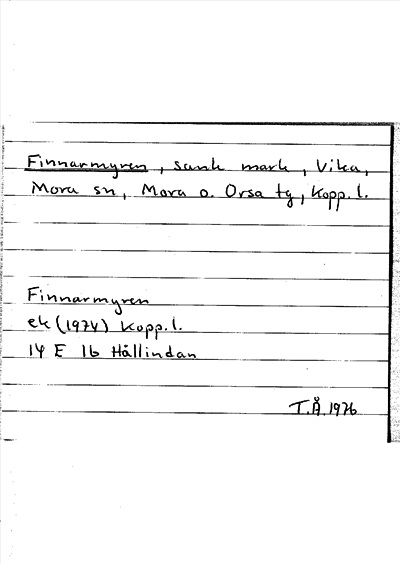 Finnarmyren, sank mark, Vika,
Mora sn, Mora o. Orsa tg, Kopp. l.
Finnarmyren
ek (1974) Kopp. l.
14 E 1b Hällindan
T.Å. 1976